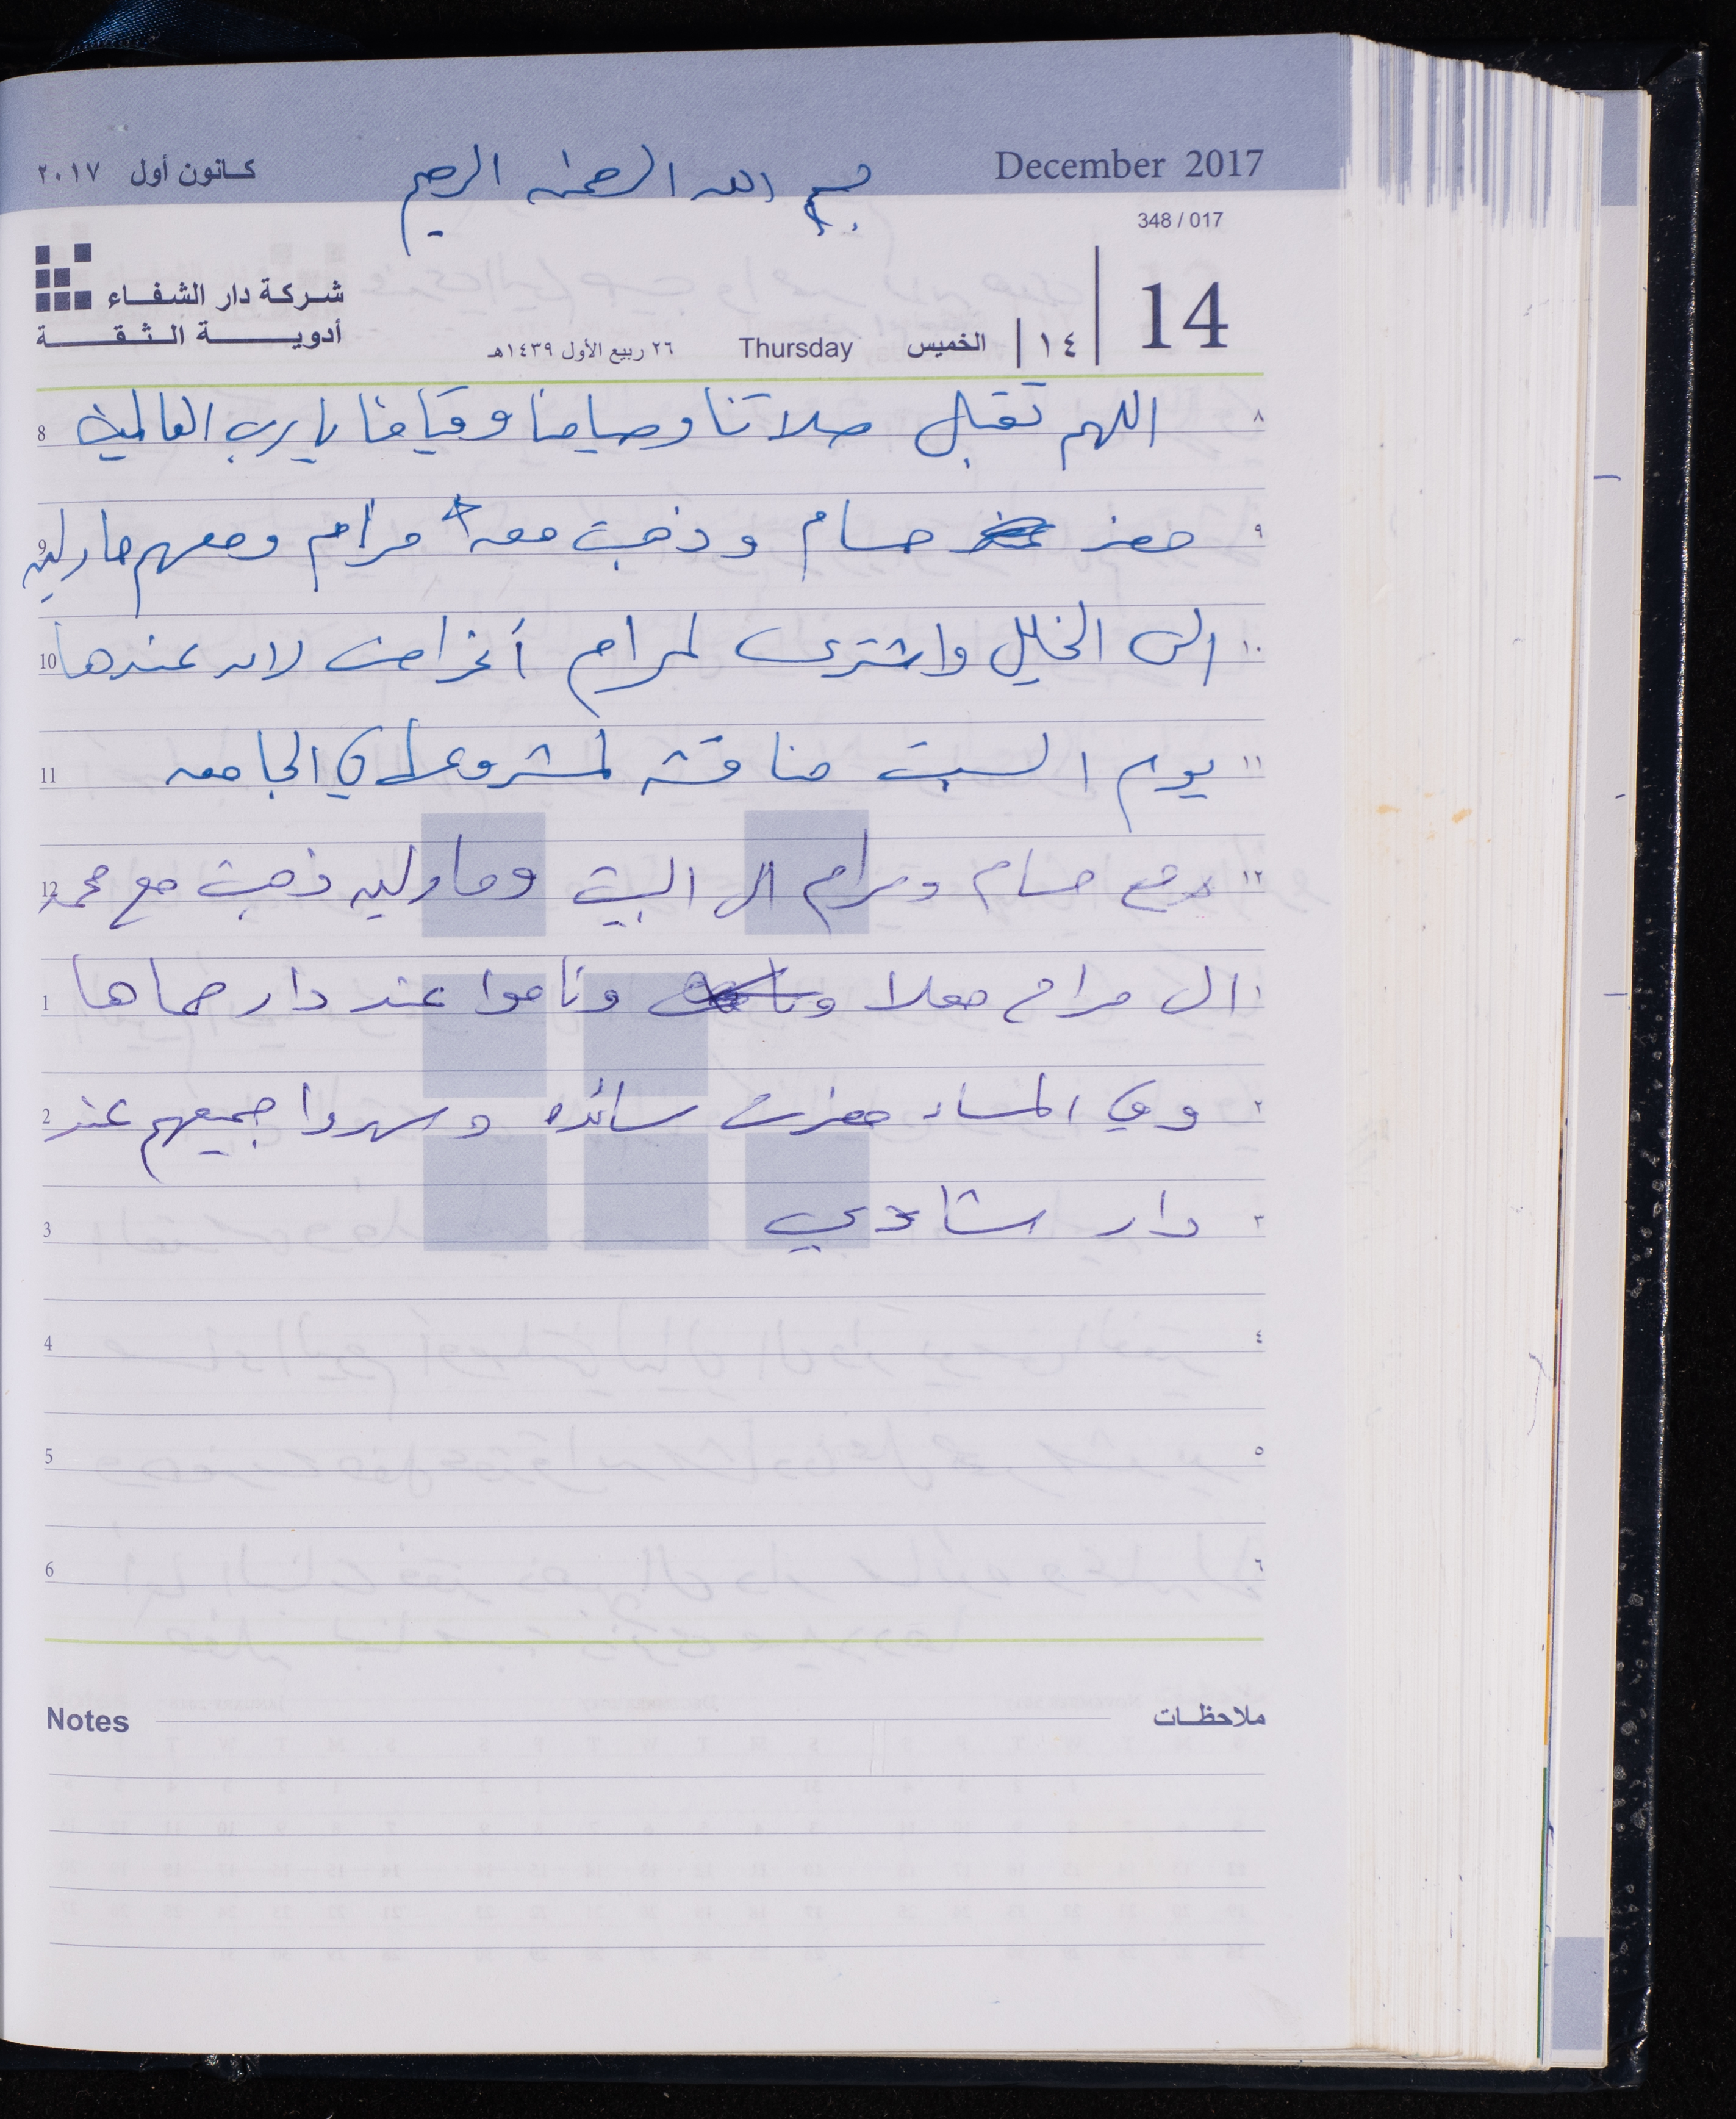 December 2017
بسم الله الرحمن الرحيم
كانون أول ٢٠١٧
348 / 017
14
١٤
الخميس
Thursday
٢٦ ربيع الأول ١٤٣٩هـ
شركة دار الشفاء
أدوية الثقة
٨ اللهم تقبل صلاتنا وصيامنا وقيامنا يا رب العالمين 8
٩ حضر حسام وذهبت معه مرام ومعهم مارلين 9
١٠ الى الخليل واشترى لمرام أغراض لان عندها 10
١١ يوم السبت مناقشه لمشروعها في الجامعه 11
١٢ حسام ومرام الى البيت ومارلين ذهبت مع محمد 12
١ ال مرام معلا وناموا عند دار حماها 1
٢ وفي المساء حضرت سائده وسهروا جميعهم عند 2
٣ دار شادي 3
٤ 4
٥ 5
٦ 6
ملاحظات Notes